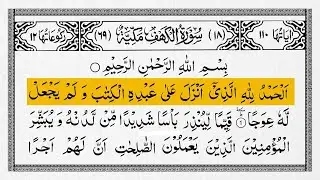 اٰیَاتُهَا ١١٠ (١٨) سُوْرَةُ الْكَهْفِ مَكِّیَّةٌ (٦٩) رُكُوْعَاتُهَا ١٢
بِسْمِ اللهِ الرَّحْمٰنِ الرَّحِیْمِ
اَلْحَمْدُ لِلّٰهِ الَّذِیْۤ اَنْزَلَ عَلٰى عَبْدِهِ الْكِتٰبَ وَ لَمْ یَجْعَلْ
لَّهٗ عِوَجًا ۱ قَیِّمًا لِّیُنْذِرَ بَاْسًا شَدِیْدًا مِّنْ لَّدُنْهُ وَ یُبَشِّرَ
الْمُؤْمِنِیْنَ الَّذِیْنَ یَعْمَلُوْنَ الصّٰلِحٰتِ اَنَّ لَهُمْ اَجْرًا